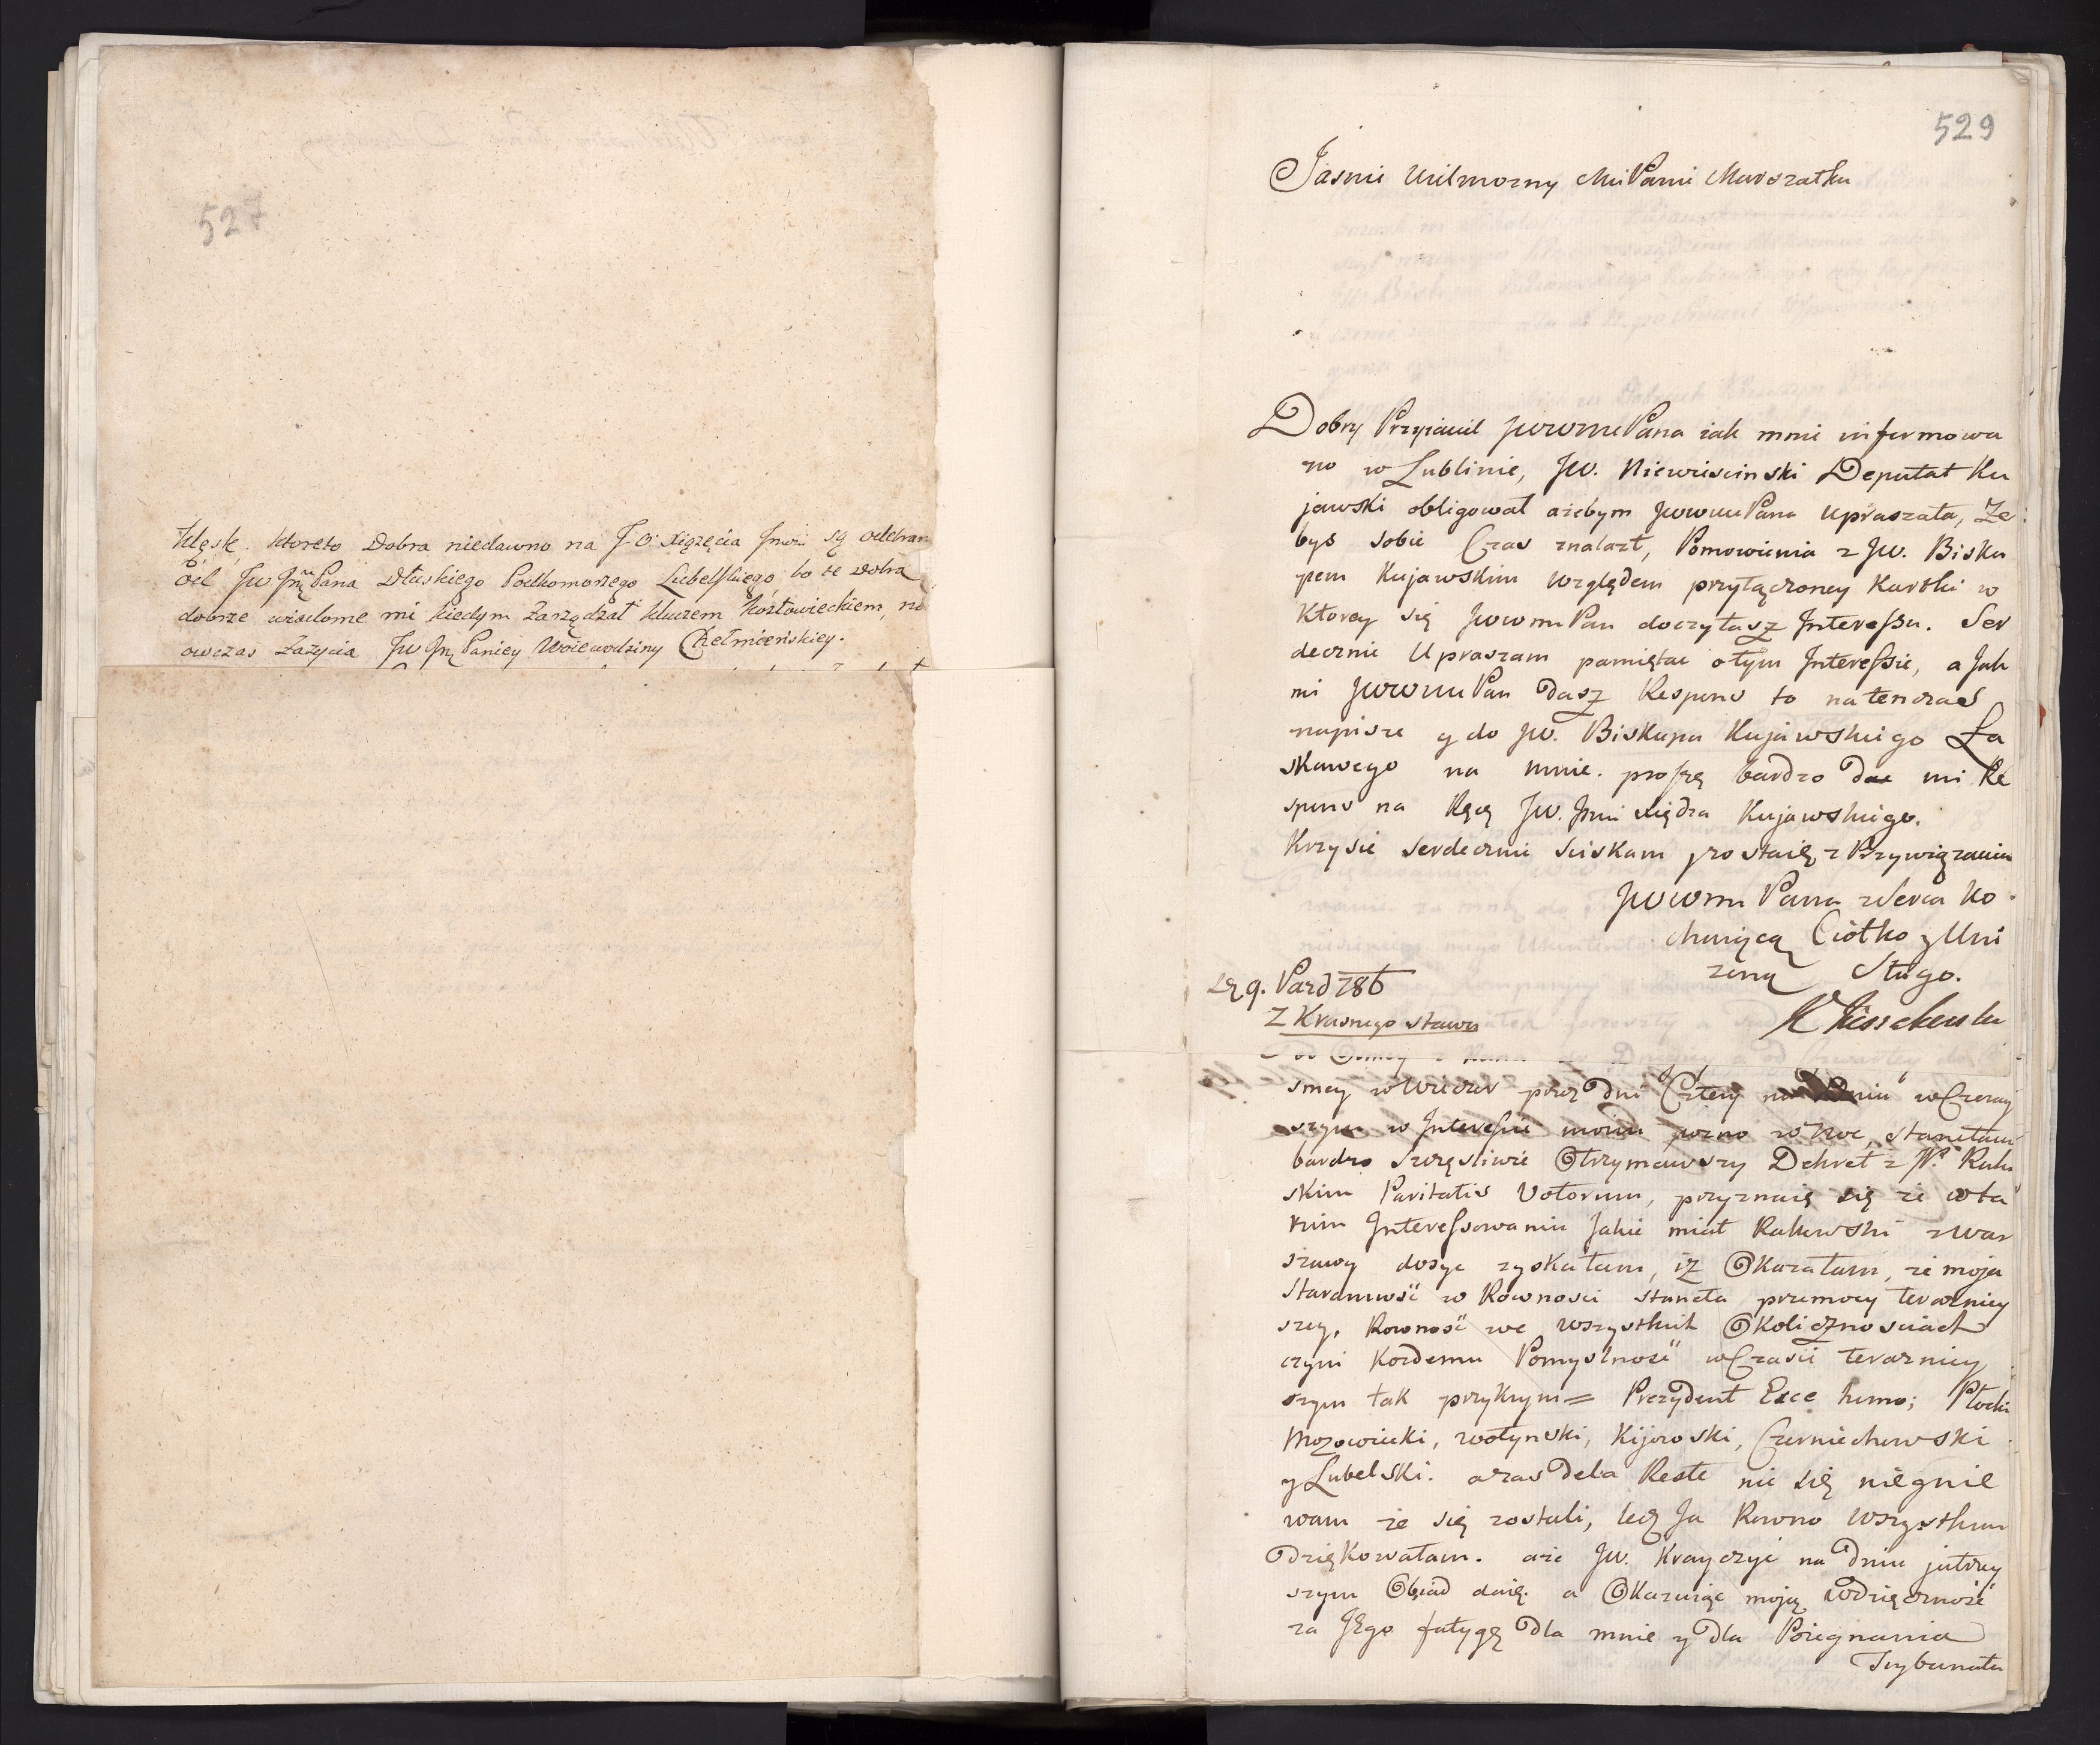 527
klęskę. ktoreto Dobra niedawno na J O Xiążęcia Jmci są odebran
od Jw Jmć Pana Dłuskiego Podkomorzego Lubelskiego, bo te Dobra
dobrze wiadome mi kiedym zarządzał kluczem Kozłowieckiem, na
owczas zażycia Jw Jmć Paniey Woiewodziny Chełmińskiey.
529
Jasnie Wielmozny Mci Panie Marszałku
Dobry Przyiaciel JwWmePana iak mnie infurmowa
no w Lublinie, Jw. Niewiescinski Deputat Ku
jawski obligował ażebym JwWmePana upraszała, że
bys sobie Czas znalazł, Pomowienia z Jw. Bisku
pem Kujawskim względem przyłączoney Kartki w
Ktorey się JwWmePan doczytasz Interessu. Ser
decznie Upraszam pamiętac o tym Interessie, a Jak
mi JwWmePan Dasz Respons to natenczas
napisze y do Jw. Biskupa Kujawskiego Ła
skawego na mnie. proszę bardzo dac mi Re
spons na Ręcę Jw. Jmci Xiędza Kujawskiego.
Krzysie serdecznie sciskam zostaię z Przywiązaniem
JwWme Pana z Serca Ko
chaiącą Ciotką y Uni
zoną Sługo.
9. Pazd 786
Z Krasnego stawu
smey w Wieczor przez Dni Cztery w Czoray
szym w Interessie moim pozno w Noc, stanełam
bardzo szczęsliwie Otrzymawszy Dekret z Ruku
skim Paritatis Votorum, przyznaię się że w ta
kim Interessowaniu Jakie miał Rakowski z War
szawy dosyc zyskałam, iż Okazałam, że moja
Starannosć w Rownosci staneła przemocy terazniey
szey, Rownosć we wszystkich Okolicznosciach
czyni Kozdemu Pomyslnosć w Czasie terazniey
szym tak przykrym = Prezydent Ecce homo; Płocki
Mozowiecki, wołynski, Kijowski, Czerniechowski
y Lubelski. a zas Dela Reste nie się niegnie
wam że się zostali, lecz Ja Rowno wszystkim
Dziękowałam. aże Jw. Krayczyc na Dniu jutrzey
szym Obiad daię. a Okazuiąc moją wdzięcznosć
za Jego fatygę Dla mnie y Dla Pozegnania
Trybunału